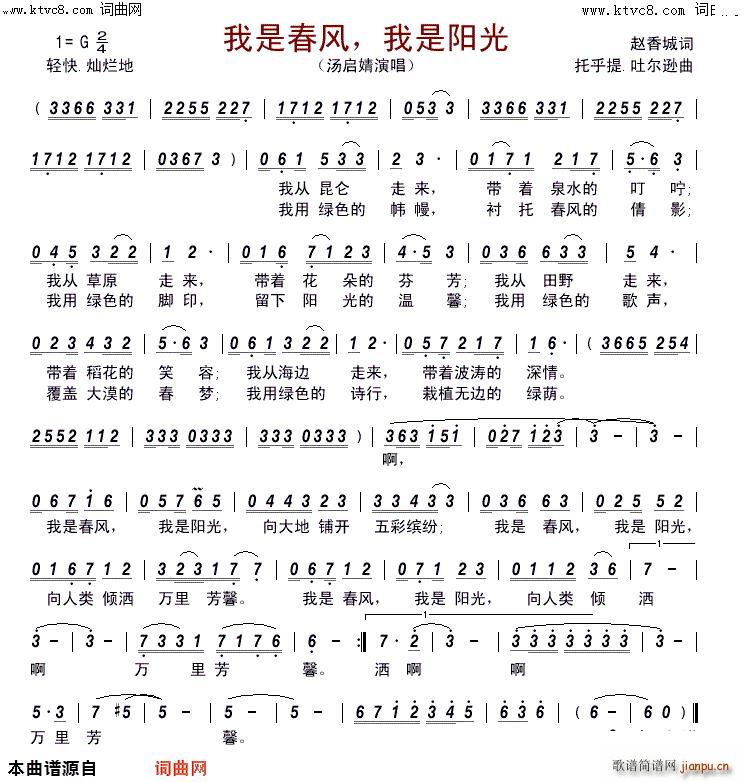 www.ktvc8.com 词曲网
www.ktvc8.com 词曲网
1= G 2/4
我是春风，我是阳光
赵香城词
轻快.灿烂地
（汤启婧演唱）
托乎提.吐尔逊曲
( 3366 331 | 2255 227 | 1712 1712 | 1712 1712 | 053 3 | 2255 227 |
1712 1712 | 0367 3 ) | 061 533 | 23· | 0171 217 | 5·6 3 |
我从 昆仑 走 来， 带 着 泉水的 叮 咛;
我用 绿色的 帏 幔， 衬 托 春风的 倩 影;
045 322 | 12· | 016 7123 | 4·5 3 | 036 633 | 54· |
我从 草原 走 来， 带着 花 朵的 芬 芳; 我从 田野 走 来，
我用 绿色的 脚 印， 留下 阳 光的 温 馨; 我用 绿色的 歌 声，
023 432 | 5·6 3 | 061 322 | 12· | 057 217 | 16· | ( 3665 254 |
带着 稻花的 笑 容; 我从海边 走来， 带着波涛的 深情。
覆盖 大漠的 春 梦; 我用绿色的 诗行， 栽植无边的 绿荫。
2552 112 | 333 0333 | 333 0333 | 333 0333 ) | 363 151 | 027 123 | 3 - | 3 - |
啊，
067 16 | 057 65 | 044 323 | 54433 | 063 67 | 052 52 |
我是春风， 我是阳光， 向大地 铺开 五彩缤纷; 我是 春风， 我是 阳光，
016 67 | 323 17 7 | 023 12 | 012 71 | 011 2 | 36 | 7 - |
向人类 倾洒 万里 芳馨。 我是 春风， 我是 阳光， 向人类 倾 洒
3 - | 3 - | 7331 | 7176 | 6 - :| 7· 2 | 3 - | 333 3333 |
啊 万 里 芳 馨。 洒 啊 啊
5·3 | 7 #5 | 5 - | 5 - | 5 - | 6712 345 | 6 06 | 5 - | 5
万里 芳 馨。
本曲谱源自 词曲网
歌谱简谱网
jianpu.cn